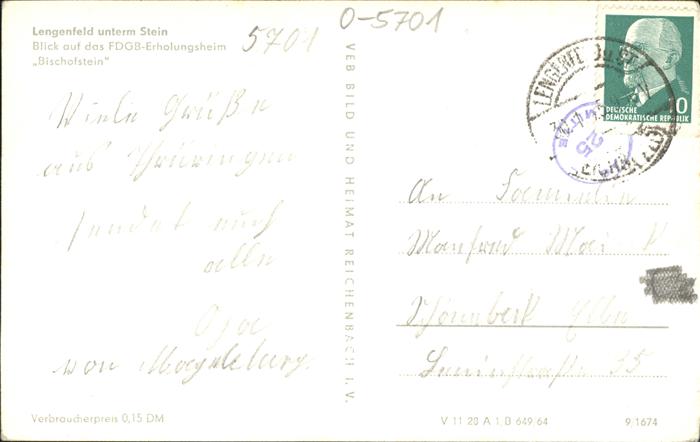 Lengenfeld unterm Stein
Blick auf das FDGB-Erholungsheim
„Bischofstein"
5701
O-5701
Viele Grüße
aus Thüringen
sendet euch
alle
Opa
von Magdeburg.
VEB BILD UND HEIMAT REICHENBACH I. V.
10
DEUTSCHE
DEMOKRATISCHE REPUBLIK
25
An Familie
Manfred
Schönebeck Elbe
Leninstraße 35
Verbraucherpreis 0,15 DM
V 11 28 A 1 B 649/64
9/1674